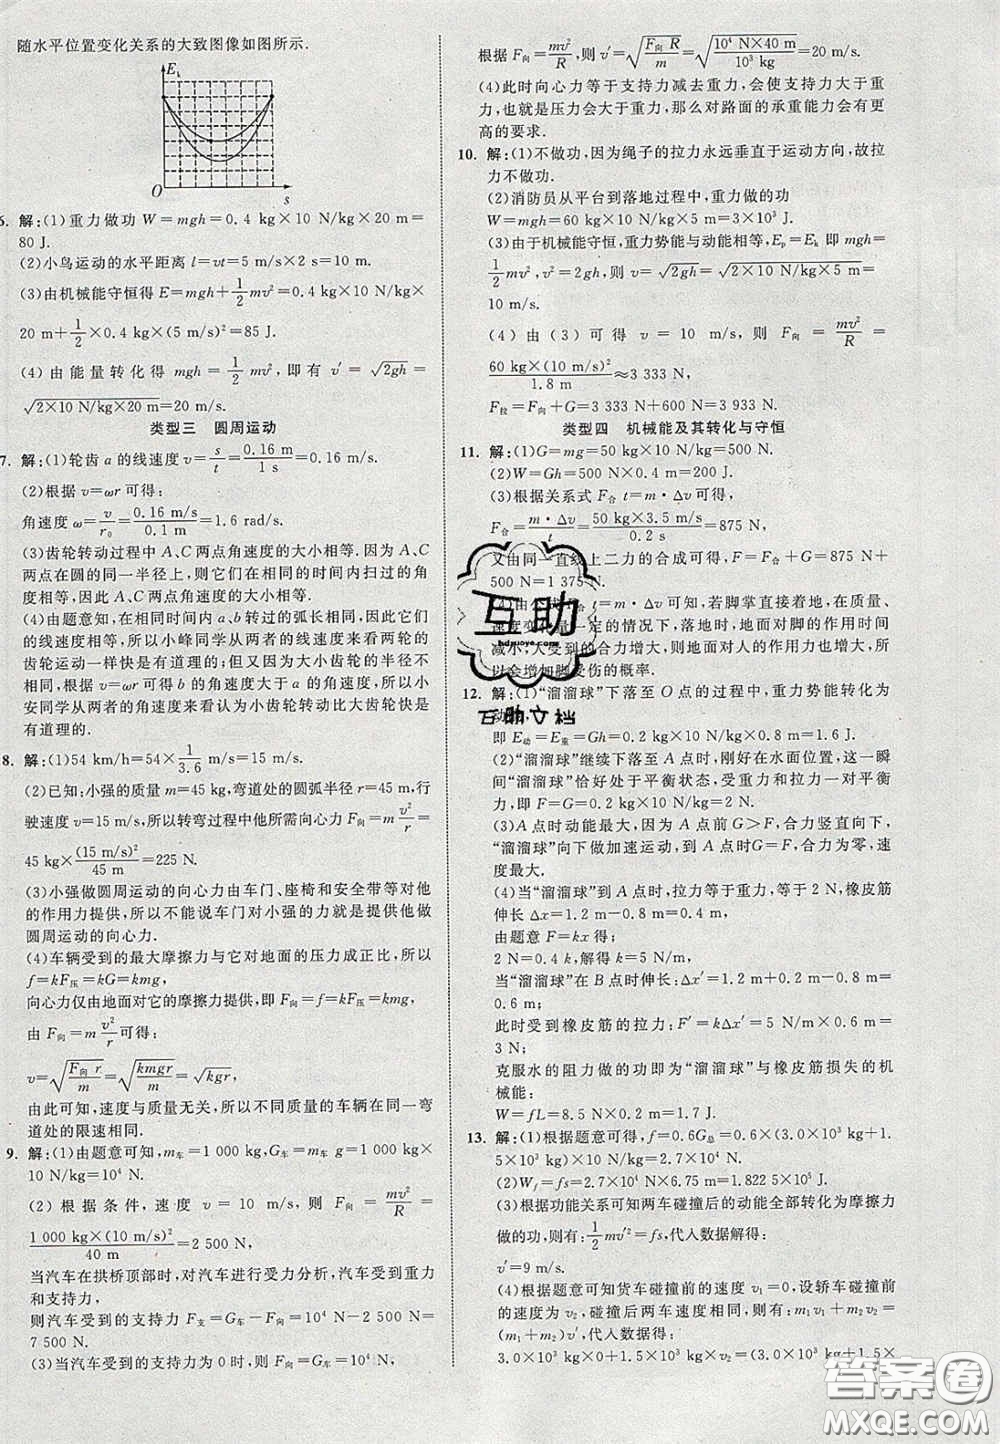 随水平位置变化关系的大致图像如图所示.
Eₖ
O
s
6. 解:(1)重力做功 W=mgh=0.4 kg×10 N/kg×20 m=
80 J.
(2)小鸟运动的水平距离 l=vt=5 m/s×2 s=10 m.
(3)由机械能守恒得 E=mgh+1/2mv²=0.4 kg×10 N/kg×
20 m+1/2×0.4 kg×(5 m/s)²=85 J.
(4)由能量转化得 mgh=1/2mv², 即有 v′=√2gh=
√2×10 N/kg×20 m=20 m/s.
类型三 圆周运动
7. 解:(1)轮齿 a 的线速度 v=s/t=0.16 m/1 s=0.16 m/s.
(2)根据 v=ωr 可得:
角速度 ω=v/r₀=0.16 m/s/0.1 m=1.6 rad/s.
(3)齿轮转动过程中 A、C 两点角速度的大小相等. 因 A、C
两点在圆的同一半径上,它们在相同的时间内扫过的角
度相等,因此 A、C 两点角速度的大小相等.
(4)由题意可知 a、b 轮齿在相同的时间内转过的弧长相
同,即线速度相等,所以小峰同学从两者的线速度来看两
齿轮运动一样快是有道理的;但因为大小齿轮的半径不
同,根据 v=ωr 可得 b 的角速度大于 a 的角速度,所以小
安同学从两者的角速度来看认为小齿轮转动比大齿轮快是
有道理的.
8. 解:(1)54 km/h=54×1/3.6 m/s=15 m/s.
(2)已知:小强的质量 m=45 kg,弯道处的圆弧半径 r=45 m,行
驶速度为 v=15 m/s,转弯过程中他所需向心力 F向=m v²/r=
45 kg×(15 m/s)²/45 m=225 N.
(3)小强做圆周运动的向心力由车门、座椅和安全带等对他
的作用力提供,所以不能说车门对小强的力提供他做
圆周运动的向心力.
(4)车辆受到的最大摩擦力与它对地面的压力成正比,所以
f=kF压=kG=kmg,
向心力仅由地面对它的摩擦力提供,即 F向=f=kF压=kmg,
由 F向=m v²/r 可得:
v=√F向 r/m=√kmgr/m=√kgr,
由此可知,速度与质量无关,所以不同质量的车辆在同一弯
道处的限速相同.
9. 解:(1)由题意可知,m车=1 000 kg,G车=m车 g=1 000 kg×
10 N/kg=10⁴ N.
(2)根据条件,速度 v=10 m/s,则 F向=mv²/R=
1 000 kg×(10 m/s)²/40 m=2 500 N.
当汽车在拱桥顶部时,对汽车进行受力分析,汽车受到重力
和支持力,
则汽车受到的支持力 F支=G车−F向=10⁴ N−2 500 N=
7 500 N.
(3)当汽车受到的支持力为 0 时,则 F向=G车=10⁴ N,
根据 F向=mv²/R,则 v=√F向 R/m=√10⁴ N×40 m/10³ kg=20 m/s.
(4)此时向心力等于支持力减去重力,会使支持力大于重
力,也就是压力会大于重力,那么对路面的承重能力会有更
高的要求.
10. 解:(1)不做功,因为绳子的拉力永远垂直于运动方向,故拉
力不做功.
(2)消防员从平台到落地过程中,重力做的功
W=mgh=60 kg×10 N/kg×5 m=3×10³ J.
(3)由于机械能守恒,重力势能与动能相等,Eₚ=Eₖ 即 mgh=
1/2mv²,v²=2gh,则 v=√2gh=√2×10 N/kg×5 m=
10 m/s.
(4)由(3)可得 v=10 m/s,则 F向=mv²/R=
60 kg×(10 m/s)²/1.8 m≈3 333 N,
F拉=F向+G=3 333 N+600 N=3 933 N.
类型四 机械能及其转化与守恒
11. 解:(1)G=mg=50 kg×10 N/kg=500 N.
(2)W=Gh=500 N×0.4 m=200 J.
(3)根据关系式 F合 t=m·Δv 可得,
F合=m·Δv/t=50 kg×3.5 m/s/0.2 s=875 N,
又由同一直线上二力的合成可得,F=F合+G=875 N+
500 N=1 375 N.
(4)由公式 F合 t=m·Δv 可知,若脚掌直接着地,在质量、
速度变化量一定的情况下,落地时,地面对脚的作用时间
减小,人受到的合力增大,则地面对人的作用力也增大,所
以会增加脚受伤的概率.
12. 解:(1)“溜溜球”下落至 O 点的过程中,重力势能转化为
动能,
即 E动=E重=Gh=0.2 kg×10 N/kg×0.8 m=1.6 J.
(2)“溜溜球”继续下落至 A 点时,刚好在水面位置,这一瞬
间“溜溜球”恰好处于平衡状态,受重力和拉力一对平衡
力,即 F=G=0.2 kg×10 N/kg=2 N.
(3)A 点时动能最大,因为 A 点前 G>F,合力竖直向下,
“溜溜球”向下做加速运动,到 A 点 G=F,合力为零,速度
最大.
(4)当“溜溜球”到 A 点时,拉力等于重力,等于 2 N,橡皮筋
伸长 Δx=1.2 m−0.8 m=0.4 m,
由题意 F=kx 得:
2 N=0.4 k,解得:k=5 N/m,
当“溜溜球”在 B 点时伸长:Δx′=1.2 m+0.2 m−0.8 m=
0.6 m;
此时受到橡皮筋的拉力:F′=kΔx′=5 N/m×0.6 m=
3 N;
克服水的阻力做的功即为“溜溜球”与橡皮筋损失的机
械能:
W=fL=8.5 N×0.2 m=1.7 J.
13. 解:(1)根据题意可得,f=0.6G总=0.6×(3.0×10³ kg+1.
5×10³ kg)×10 N/kg=2.7×10⁴ N.
(2)Wf=fs=2.7×10⁴ N×6.75 m=1.822 5×10⁵ J.
(3)根据功能关系可知两车碰撞后的动能全部转化为摩擦力
做的功,有:1/2mv′²=fs,代入数据解得:
v′=9 m/s.
(4)根据题意可知货车碰撞前的速度 v₁=0,设轿车碰撞前
的速度为 v₂,碰撞后两车速度相同,则有:m₁v₁+m₂v₂=
(m₁+m₂)v′,代入数据得:
3.0×10³ kg×0+1.5×10³ kg×v₂=(3.0×10³ kg+1.5×
互助
互助文档
答案圈
MXQE.COM